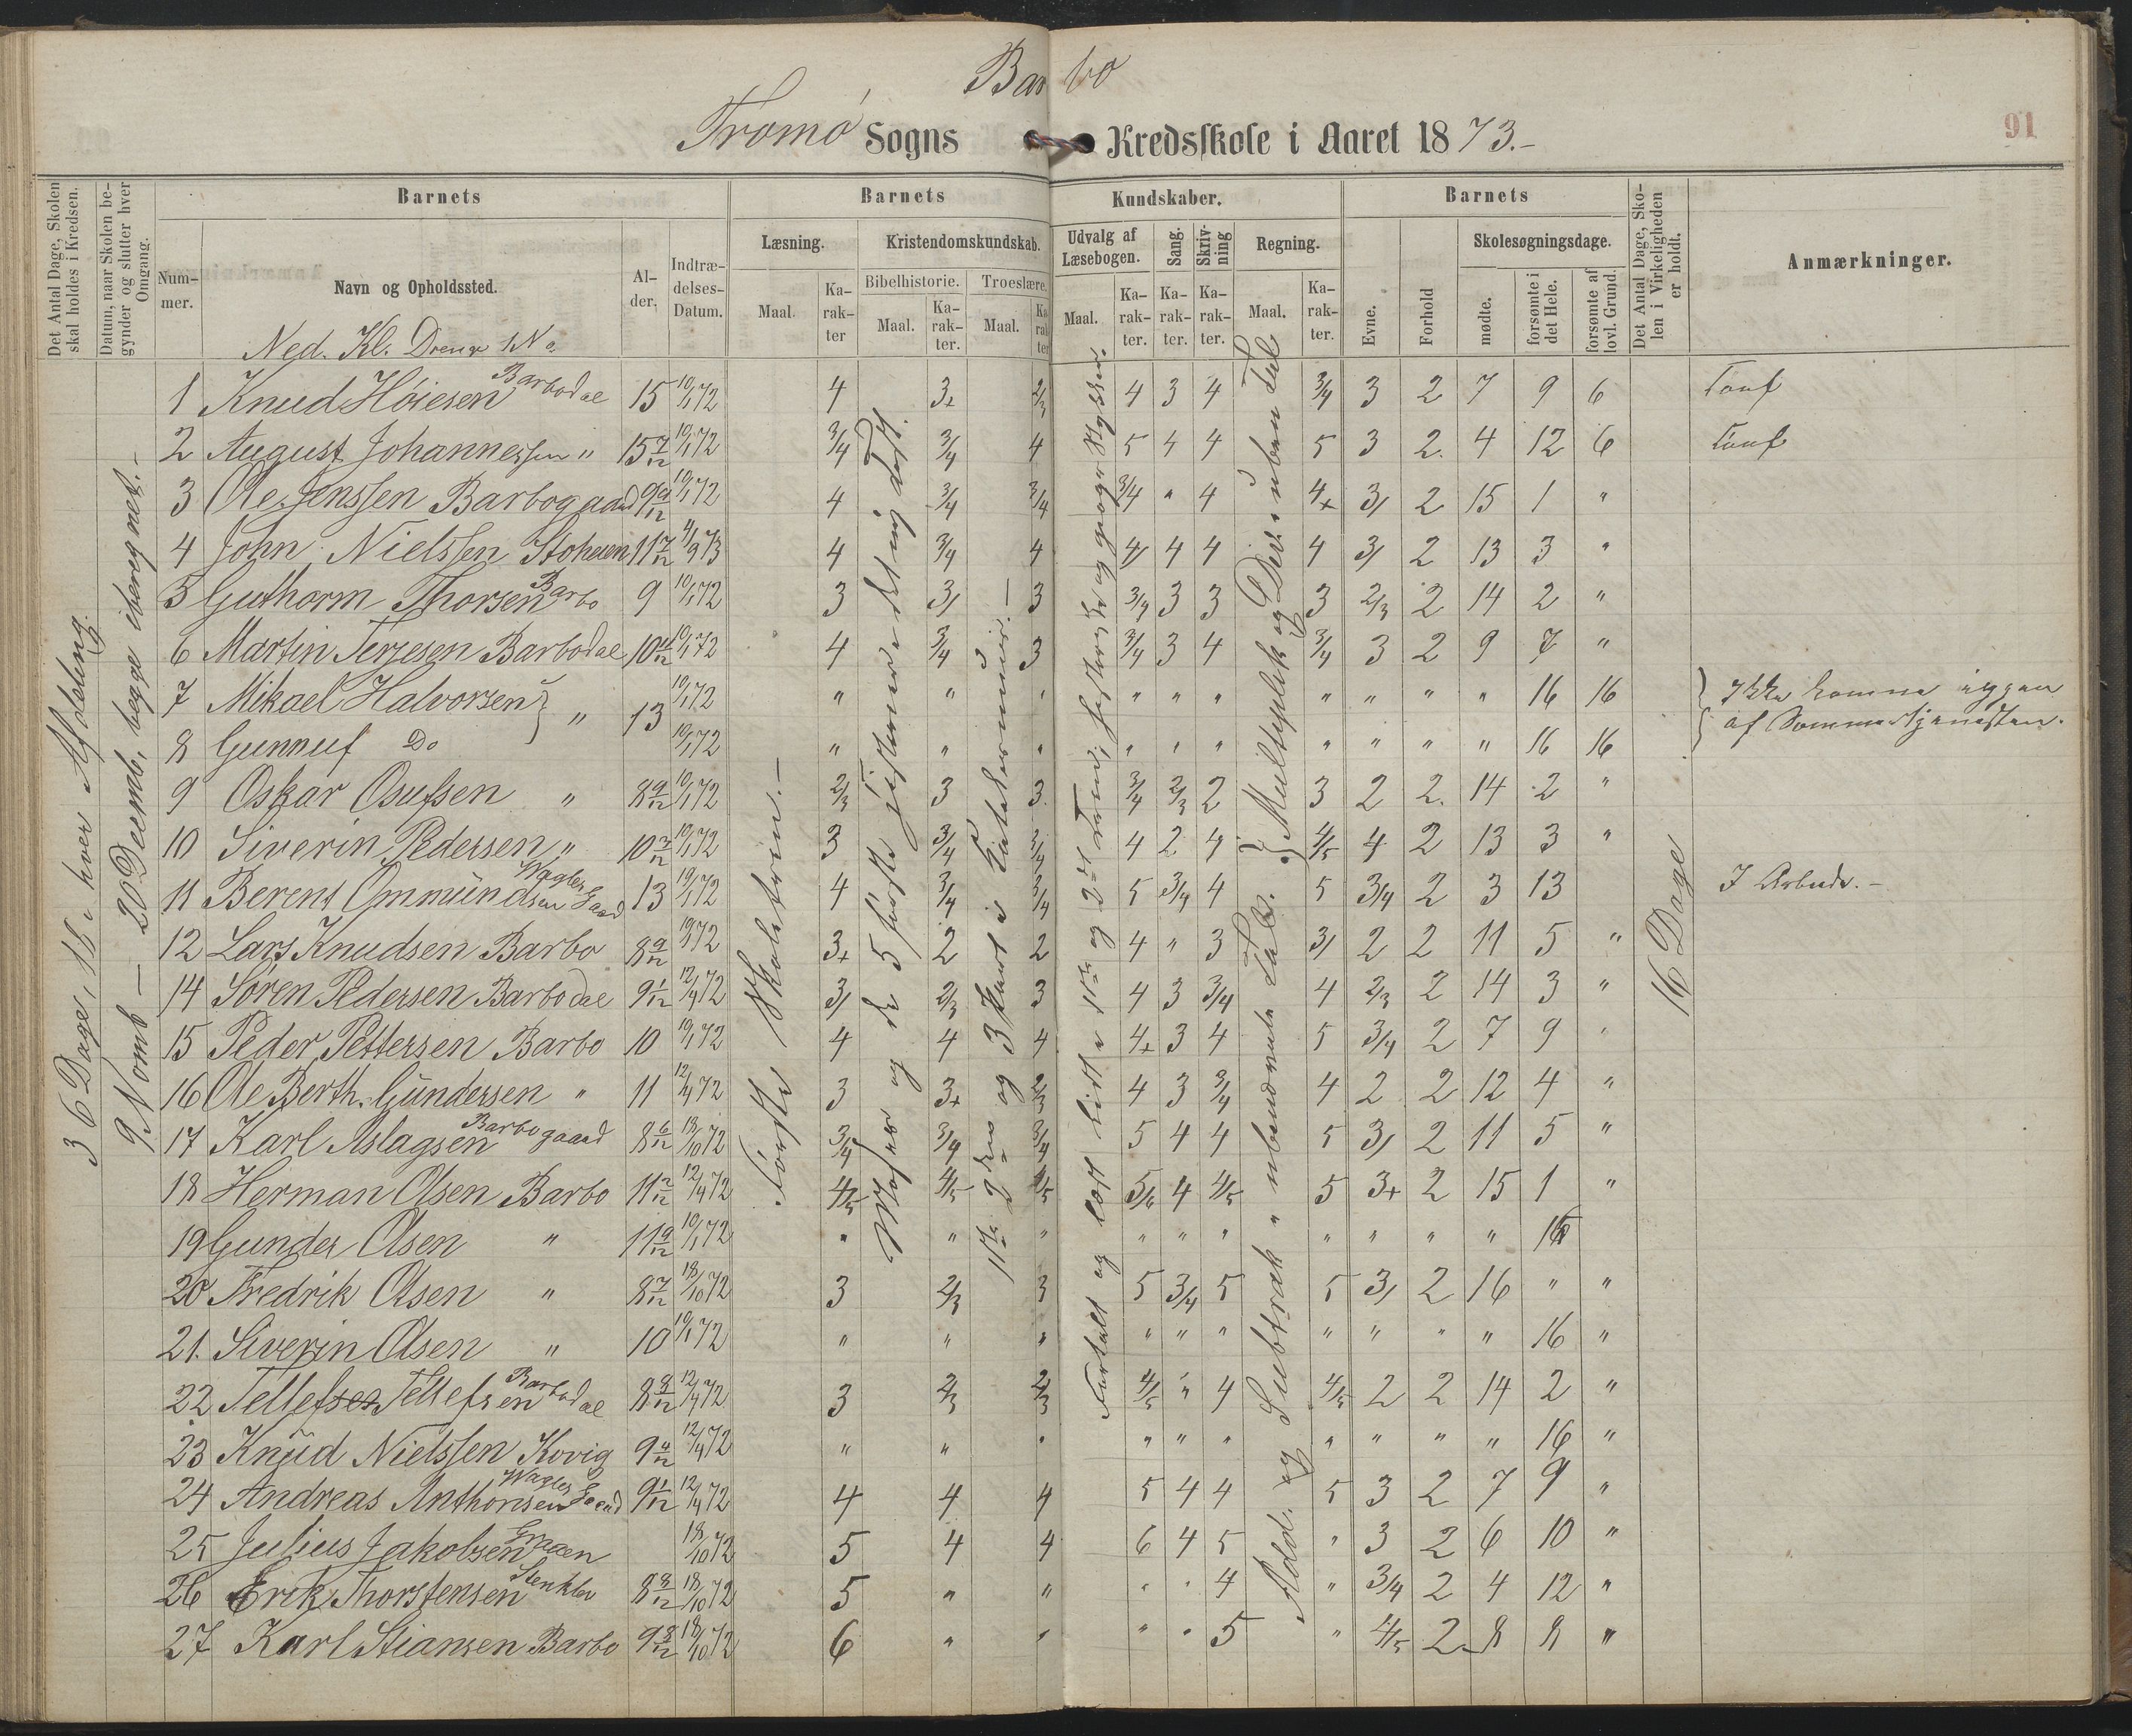 Barbo
Tromø Sogns Kredsskole i Aaret 1873.-
91
Det Antal Dage, Skolen skal holdes i Kredsen.
Datum, naar Skolen begynder og slutter hver Omgang.
Barnets
Nummer.
Navn og Opholdssted.
Alder.
Indtrædelses-Datum.
Barnets Kundskaber.
Læsning.
Maal.
Karakter
Kristendomskundskab.
Bibelhistorie.
Maal.
Karakter.
Troeslære.
Maal.
Karakter
Udvalg af Læsebogen.
Maal.
Karakter.
Sang.
Karakter.
Skrivning
Karakter.
Regning.
Maal.
Karakter.
Barnets
Evne.
Forhold
Skolesøgningsdage.
mødte.
forsømte i det Hele.
forsømte af lovl. Grund.
Det Antal Dage, Skolen i Virkeligheden er holdt.
Anmærkninger.
Ned. Kl. Drenge
36 Dage, 18 i hver Afdeling.
9 Novmb – 20 Decemb, begge iberegnet.-
Første Skoletrin.-
16 Dage
1 Knud Høiesen Barbodal 15 10/1 72 4 3+ 2/3 4 3 4 3/4 3 2 7 9 6
2 August Johannessen " 15 7/12 10/1 72 3/4 3/4 4 5 4 4 5 3 2. 4 12 6
3 Ole Jenssen Barbogaard 9 9/12 10/1 72 4 3/4 3/4 3/4 " 4 4+ 3/ 2 15 1 "
4 John Nielssen 11 7/12 4/9 73 4 3/4 4 4/ 4 4 4 3/ 2 13 3 "
5 Guthorm Thorsen Barbo 9 10/1 72 3 3/ 3 3/4 3 3 3 2/3 2 14 2 "
6 Martin Terjesen Barbodal 10 4/12 10/1 72 4 3/4 3 3/4 3 4 3/4 3 2 9 7 "
7 Mikael Halvorsen } " 13 10/1 72 " " " " " " " " " " 16 16 } Ikke komne iggen
8 Gunnuf Do 10/1 72 " " " " " " " " " " 16 16 af Sommertjenesten.
9 Oskar Osufsen " 8 9/12 10/1 72 2/3 3 3. 3/4 2/3 2 3 2 2. 14 2 "
10 Siverin Pedersen " 10 3/12 10/1 72 3 3/4 3/4 4 2 4 4/5 4 2 13 3 "
11 Berent Ommundsen Wagles Gaard 13 10/1 72 4 3/4 3/4 5 3/4 4 5 3/4 2 3 13 I Arbeide.-
12 Lars Knudsen Barbo 8 9/12 10/1 72 3+ 2 2 4 " 3 3/ 2 2 11 5 "
14 Søren Pedersen Barbodal 9 1/12 12/4 72 3/ 2/3 3 4 3 3/4 4 2/3 2 14 3 "
15 Peder Pettersen Barbo 10 10/1 72 4 4 4 4+ 3 4 5 3/4 2 7 9 "
16 Ole Berth. Gundersen " 11 12/4 72 3 3+ 2/3 4 3 3/4 4 2 2 12 4 "
17 Karl Aslagsen Barbogaard 8 6/12 18/10 72 3/4 3/4 3/4 5 4 4 5 3/ 2 11 5 "
18 Herman Olsen Barbo 11 2/12 12/4 72 4/5 4/5 4/5 5/6 4 4/5 5 3+ 2 15 1 "
19 Gunder Olsen " 11 9/12 10/1 72 " " " " " " " " " " 16
20 Fredrik Olsen " 8 7/12 18/10 72 3 2/3 3 5 3/4 5 5 3/ 2 16 " "
21. Siverin Olsen " 10 10/1 72 " " " " " " " " " " 16 "
22 Tellef Tellefsen Barbodal 8 8/12 12/4 72 3 2/3 2/3 4/5 " 4 4/5 2 2 14 2 "
23 Knud Nielssen Kovig 9 4/12 12/4 72 " " " " " " " " " " 16 "
24 Andreas Anthonsen Wagles Gaard 9 1/12 12/4 72 4 4 4 5 4 4 5 3 2 7 9 "
25 Julius Jakobsen Graaen 18/10 72 5 4 4 6 4 5 " 3 2 6 10 "
26 Erik Thorstensen 8 8/12 18/10 72 5 " " " " 4 " 3/4 2 4 12 "
27 Karl Stiansen Barbo 9 8/12 18/10 72 6 " " " " 5 " 4/5 2 8 8 "